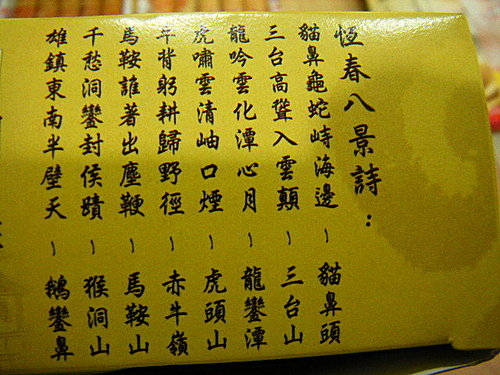 恆春八景詩：
貓鼻龜蛇峙海邊～貓鼻頭
三台高聳入雲顛～三台山
龍吟雲化潭心月～龍鑾潭
虎嘯雲清岫口煙～虎頭山
牛背躬耕歸野徑～赤牛嶺
馬鞍誰著出塵鞭～馬鞍山
千愁洞鑾封侯蹟～猴洞山
雄鎮東南半壁天～鵝鑾鼻